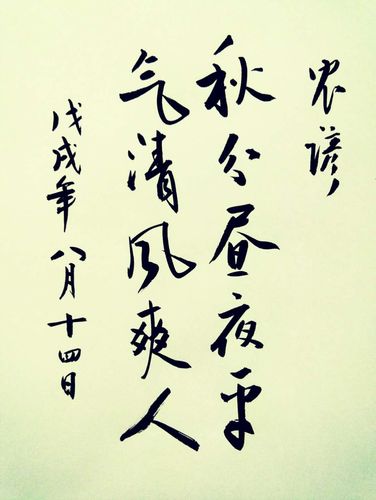 农谚
秋分昼夜平
气清風爽人
戊戌年八月十四日